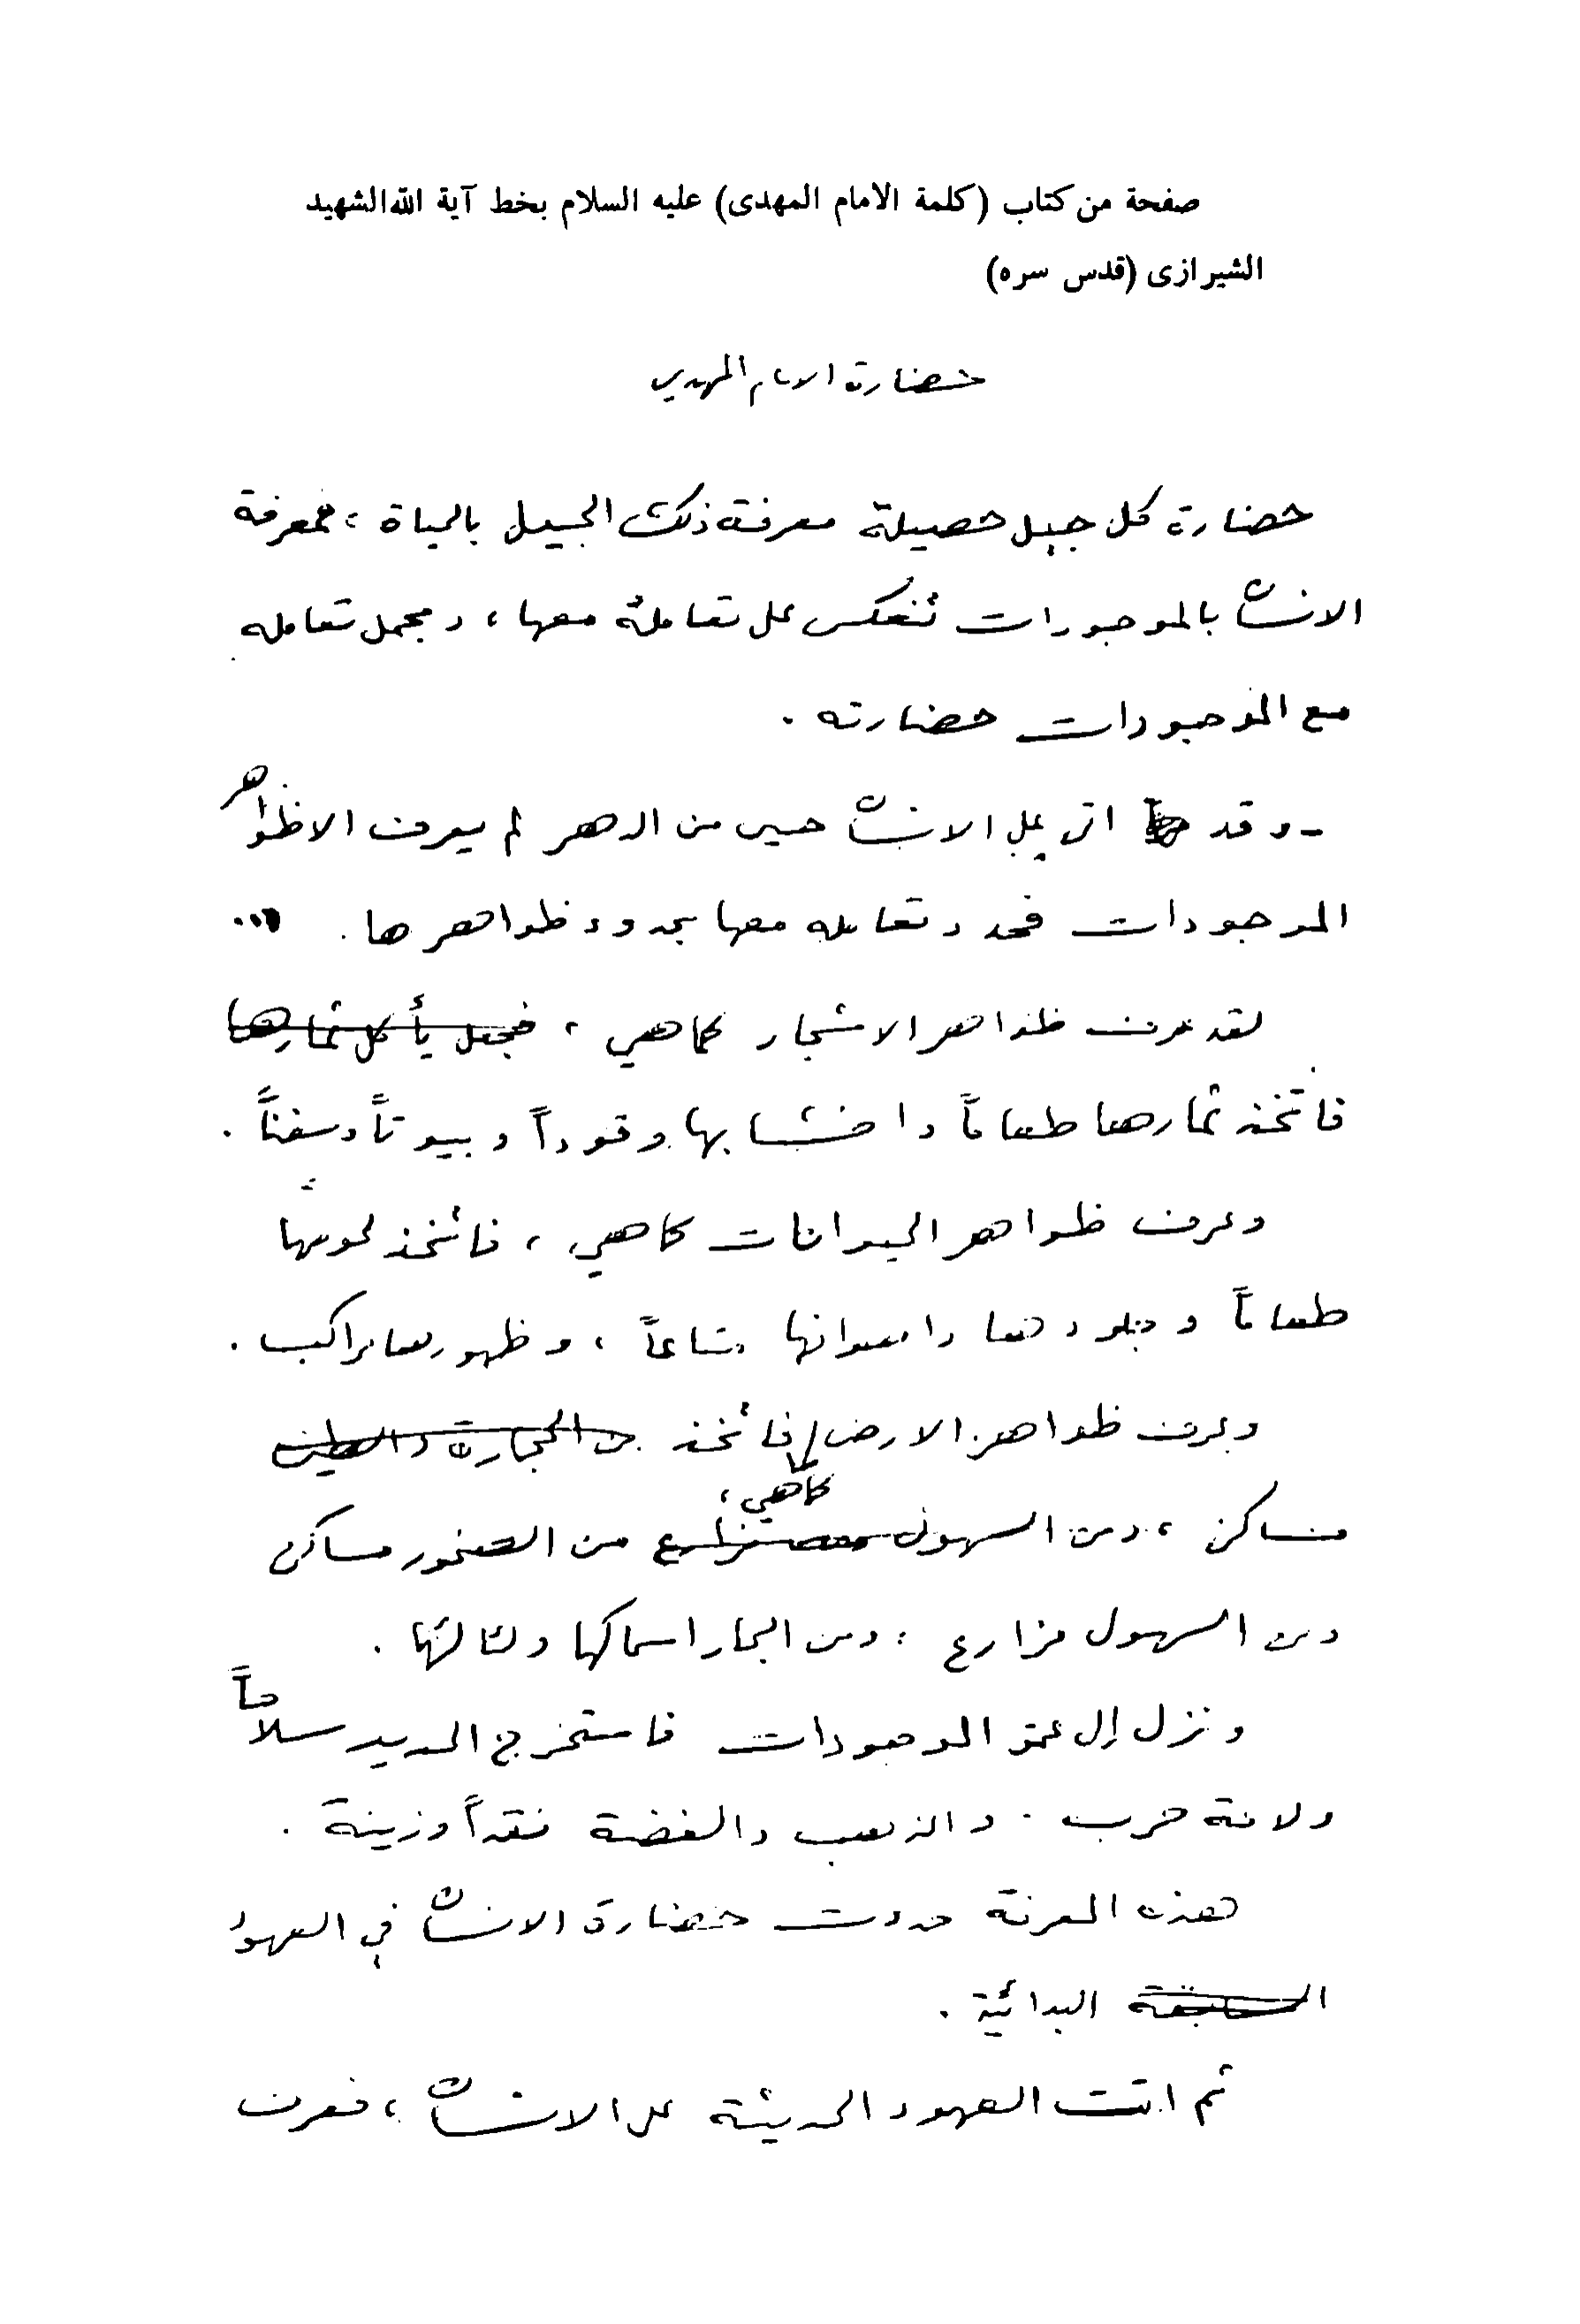 صفحة من كتاب (كلمة الامام المهدى) عليه السلام بخط آية الله الشهيد
الشيرازى (قدس سره)
حضارة الامام المهدي
حضارة كل جيل حصيلة معرفة ذلك الجيل بالحياة ، فمعرفة
الانسان بالموجودات تنعكس على تعامله معها ، ومجمل تعامله
مع الموجودات حضارته .
- وقد اتى على الانسان حين من الدهر لم يعرف الا ظواهر
الموجودات فحدد تعامله معها بحدود ظواهرها . ...
لقد عرف ظواهر الاشجار كما هي ، فجعل يأكل ثمارها
فاتخذ ثمارها طعاماً واخشابها وقوداً وبيوتاً وسفناً .
وعرف ظواهر الحيوانات كما هي ، فاتخذ لحومها
طعاماً وجلودها واصوافها متاعاً ، وظهورها مراكب .
وعرف ظواهر الارض فاتخذ من الحجارة والطين
كما هي ،
مساكن ، ومن السهول مزارع من الصخور مساكن
ومن السهول مزارع ، ومن البحار اسماكها ولئالئها .
ونزل إلى عمق الموجودات فاستخرج الحديد سلاحاً
ولامة حرب . والذهب والفضة نقداً وزينة .
هذه المعرفة حددت حضارة الانسان في العهود
السابقة البدائية .
ثم اتت العهود الحديثة على الانسان ، فعرف